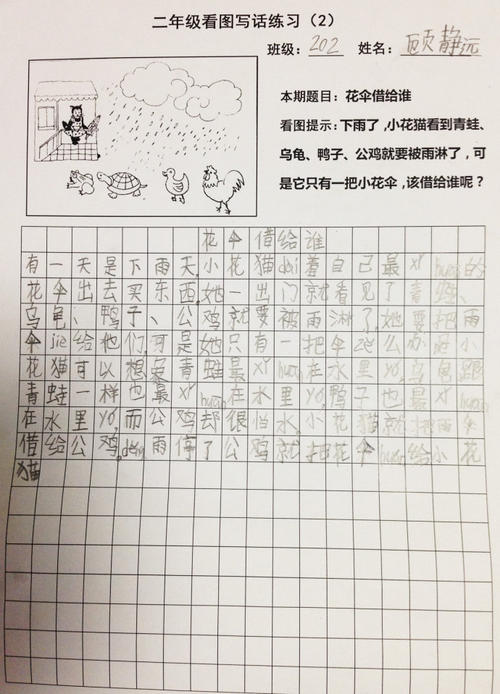 二年级看图写话练习（2）
班级：202 姓名：顾静远
本期题目：花伞借给谁
看图提示：下雨了，小花猫看到青蛙、
乌龟、鸭子、公鸡就要被雨淋了，可
是它只有一把小花伞，该借给谁呢？
花伞借给谁
有一天是下雨天，小花猫dài着自己最xǐ huan的
花伞出去买东西，她一出门就看见了青蛙、
乌龟、鸭子、公鸡就要被雨淋了，她要把雨
伞jiè给他们，可是她只有一把伞怎么办呢小
花猫可以想，青蛙最xǐ huan在水里yǒ，乌龟跟
青蛙一样也最xǐ huan在水里yǒ，鸭子也最xǐ huan
在水里yǒ，而公鸡却很怕水。小花猫就把雨伞
借给公鸡，děng雨停了公鸡就把花伞huán给小花
猫